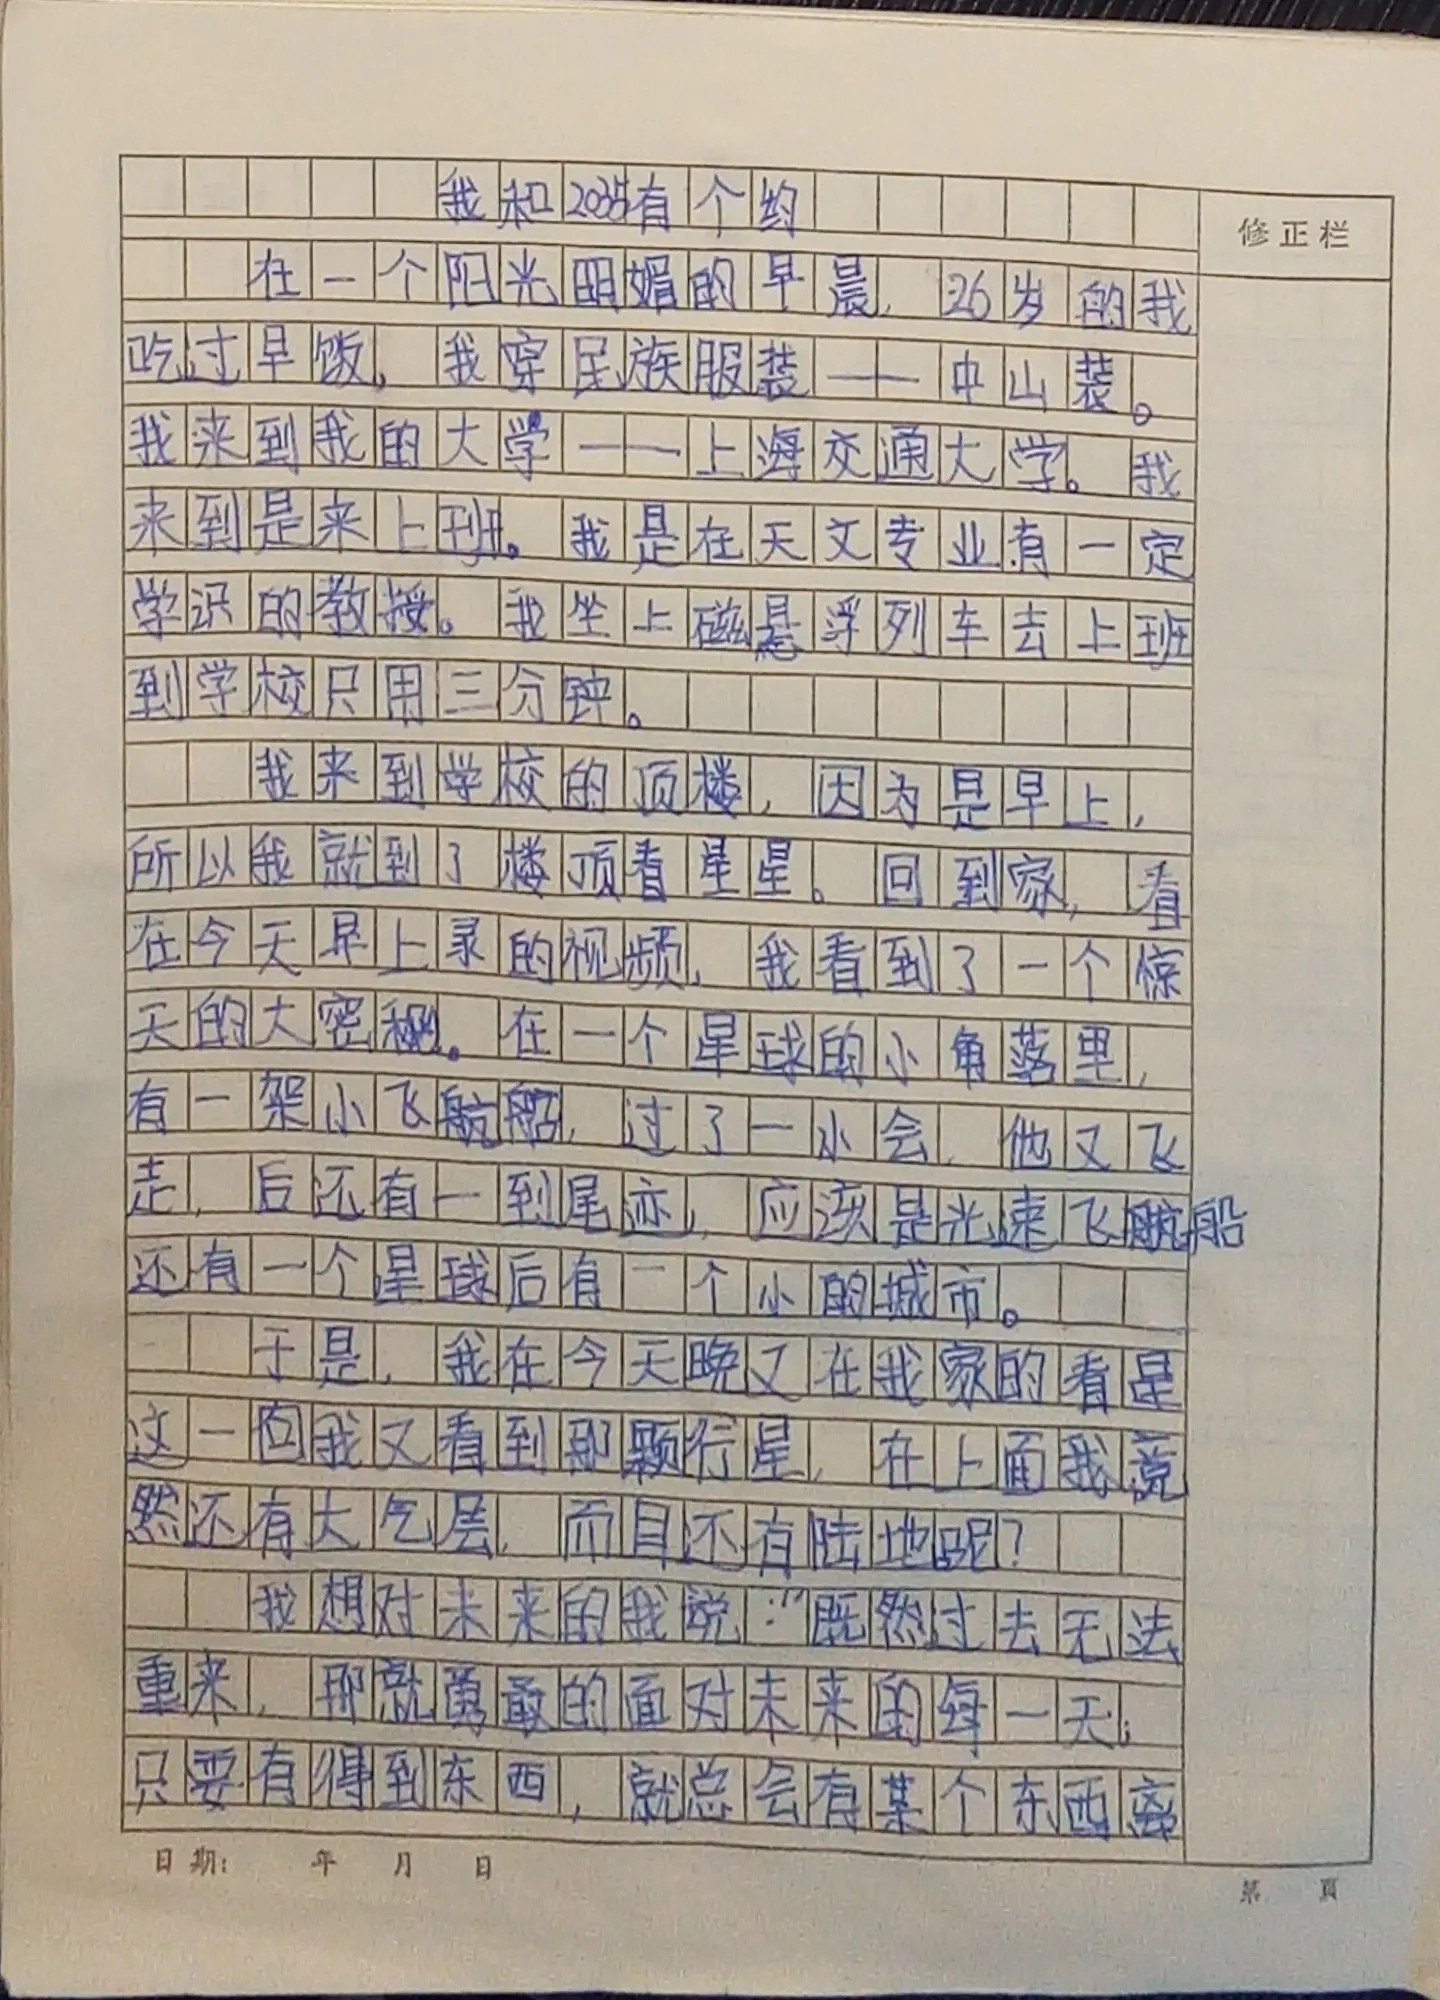 我和2035有个约
修正栏
在一个阳光明媚的早晨，26岁的我
吃过早饭，我穿民族服装——中山装。
我来到我的大学——上海交通大学。我
来到是来上班。我是在天文专业有一定
学识的教授。我坐上磁悬浮列车去上班
到学校只用三分钟。
我来到学校的顶楼，因为是早上，
所以我就到了楼顶看星星。回到家，看
在今天早上录的视频，我看到了一个惊
天的大密秘。在一个星球的小角落里，
有一架小飞航船，过了一小会，他又飞
走，后还有一到尾迹，应该是光速飞航船
还有一个星球后有一个小的城市。
于是，我在今天晚又在我家的看星
这一回我又看到那颗行星，在上面我竟
然还有大气层，而且还有陆地呢？
我想对未来的我说：“既然过去无法
重来，那就勇敢的面对未来的每一天；
只要有得到东西，就总会有某个东西离
日期： 年 月 日
第 頁